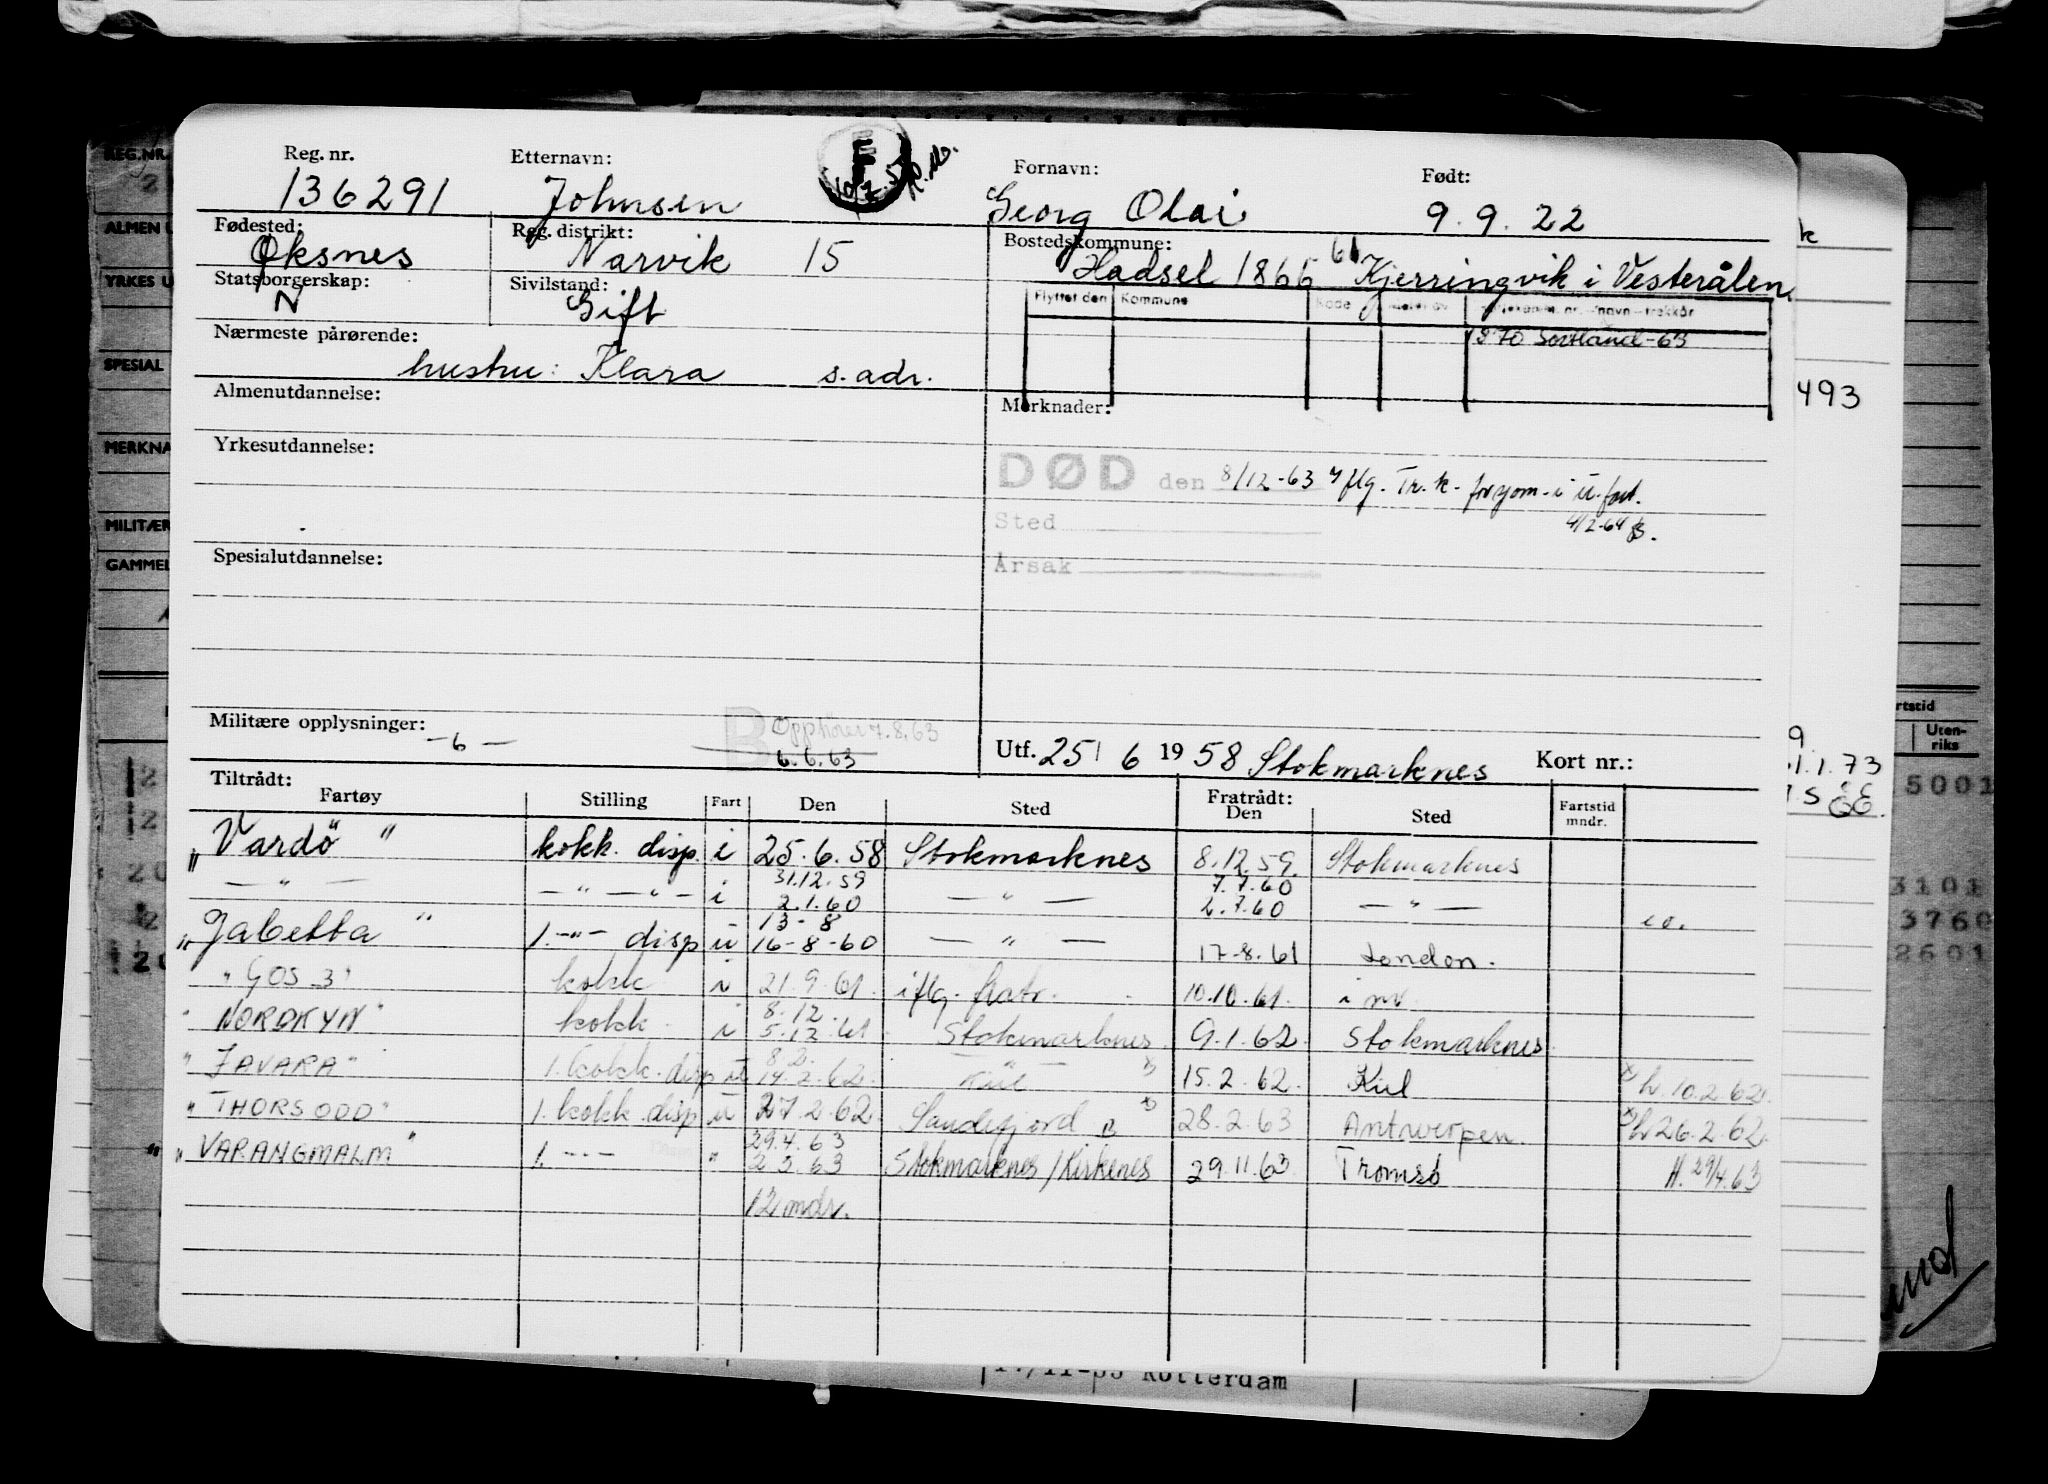 Reg. nr. Etternavn: Fornavn: Født:
136291 Johnsen Georg Olai 9.9.22
Fødested: Reg. distrikt: Bostedskommune:
Øksnes Narvik 15 Hadsel 1866 61 Kjerringvik i Vesterålen
Statsborgerskap: Sivilstand: Flyttet den Kommune Kode
N Gift 1870 Sortland-63
Nærmeste pårørende:
hustru: Klara s. adr.
Almenutdannelse: Merknader:
Yrkesutdannelse:
DØD den 8/12-63 iflg. Tr.k. for sjøm. i u.fart.
Sted 4/2-64
Årsak
Spesialutdannelse:
Militære opplysninger: -6- B Opphører 7.8.63
6.6.63
Utf. 25/6 1958 Stokmarknes Kort nr.:
Tiltrådt: Fratrådt:
Fartøy Stilling Fart Den Sted Den Sted Fartstid mndr.
"Vardø" kokk. disp. i 25.6.58 Stokmarknes 8.12.59. Stokmarknes
— " — — " — " — i 31.12.59 2.1.60 — " — 7.7.60 2.7.60 — " —
"Jabetta" 1. -"- disp u 13-8 16-8-60 — " — 17-8.61 London. eo.
"GOS 3" kokk i 21.9.61. iflg. fratr. 10.10.61. i nv.
"NORDKYN" kokk. i 8.12. 5.12.61 Stokmarknes. 9.1.62. Stokmarknes
"JAVARA" 1. kokk. disp ut 8.2. 14.2.62. Kiel 15.2.62. Kiel h. 10.2.62.
"THORSODD" 1. kokk. disp u 27.2.62 Sandefjord B 28.2.63 Antwerpen. h 26.2.62.
"VARANGMALM" 1. -"- " 29.4.63 2.5.63 Stokmarknes/Kirkenes 29.11.63. Tromsø H. 29/4.63
12 mndr.
REG.NR.
ALMEN U
YRKES U
SPESIAL
MERKNA
MILITÆR
GAMMEL
493
1.1.73
rtstid
Uten-
riks
5001
3101
3760
2601
Rotterdam